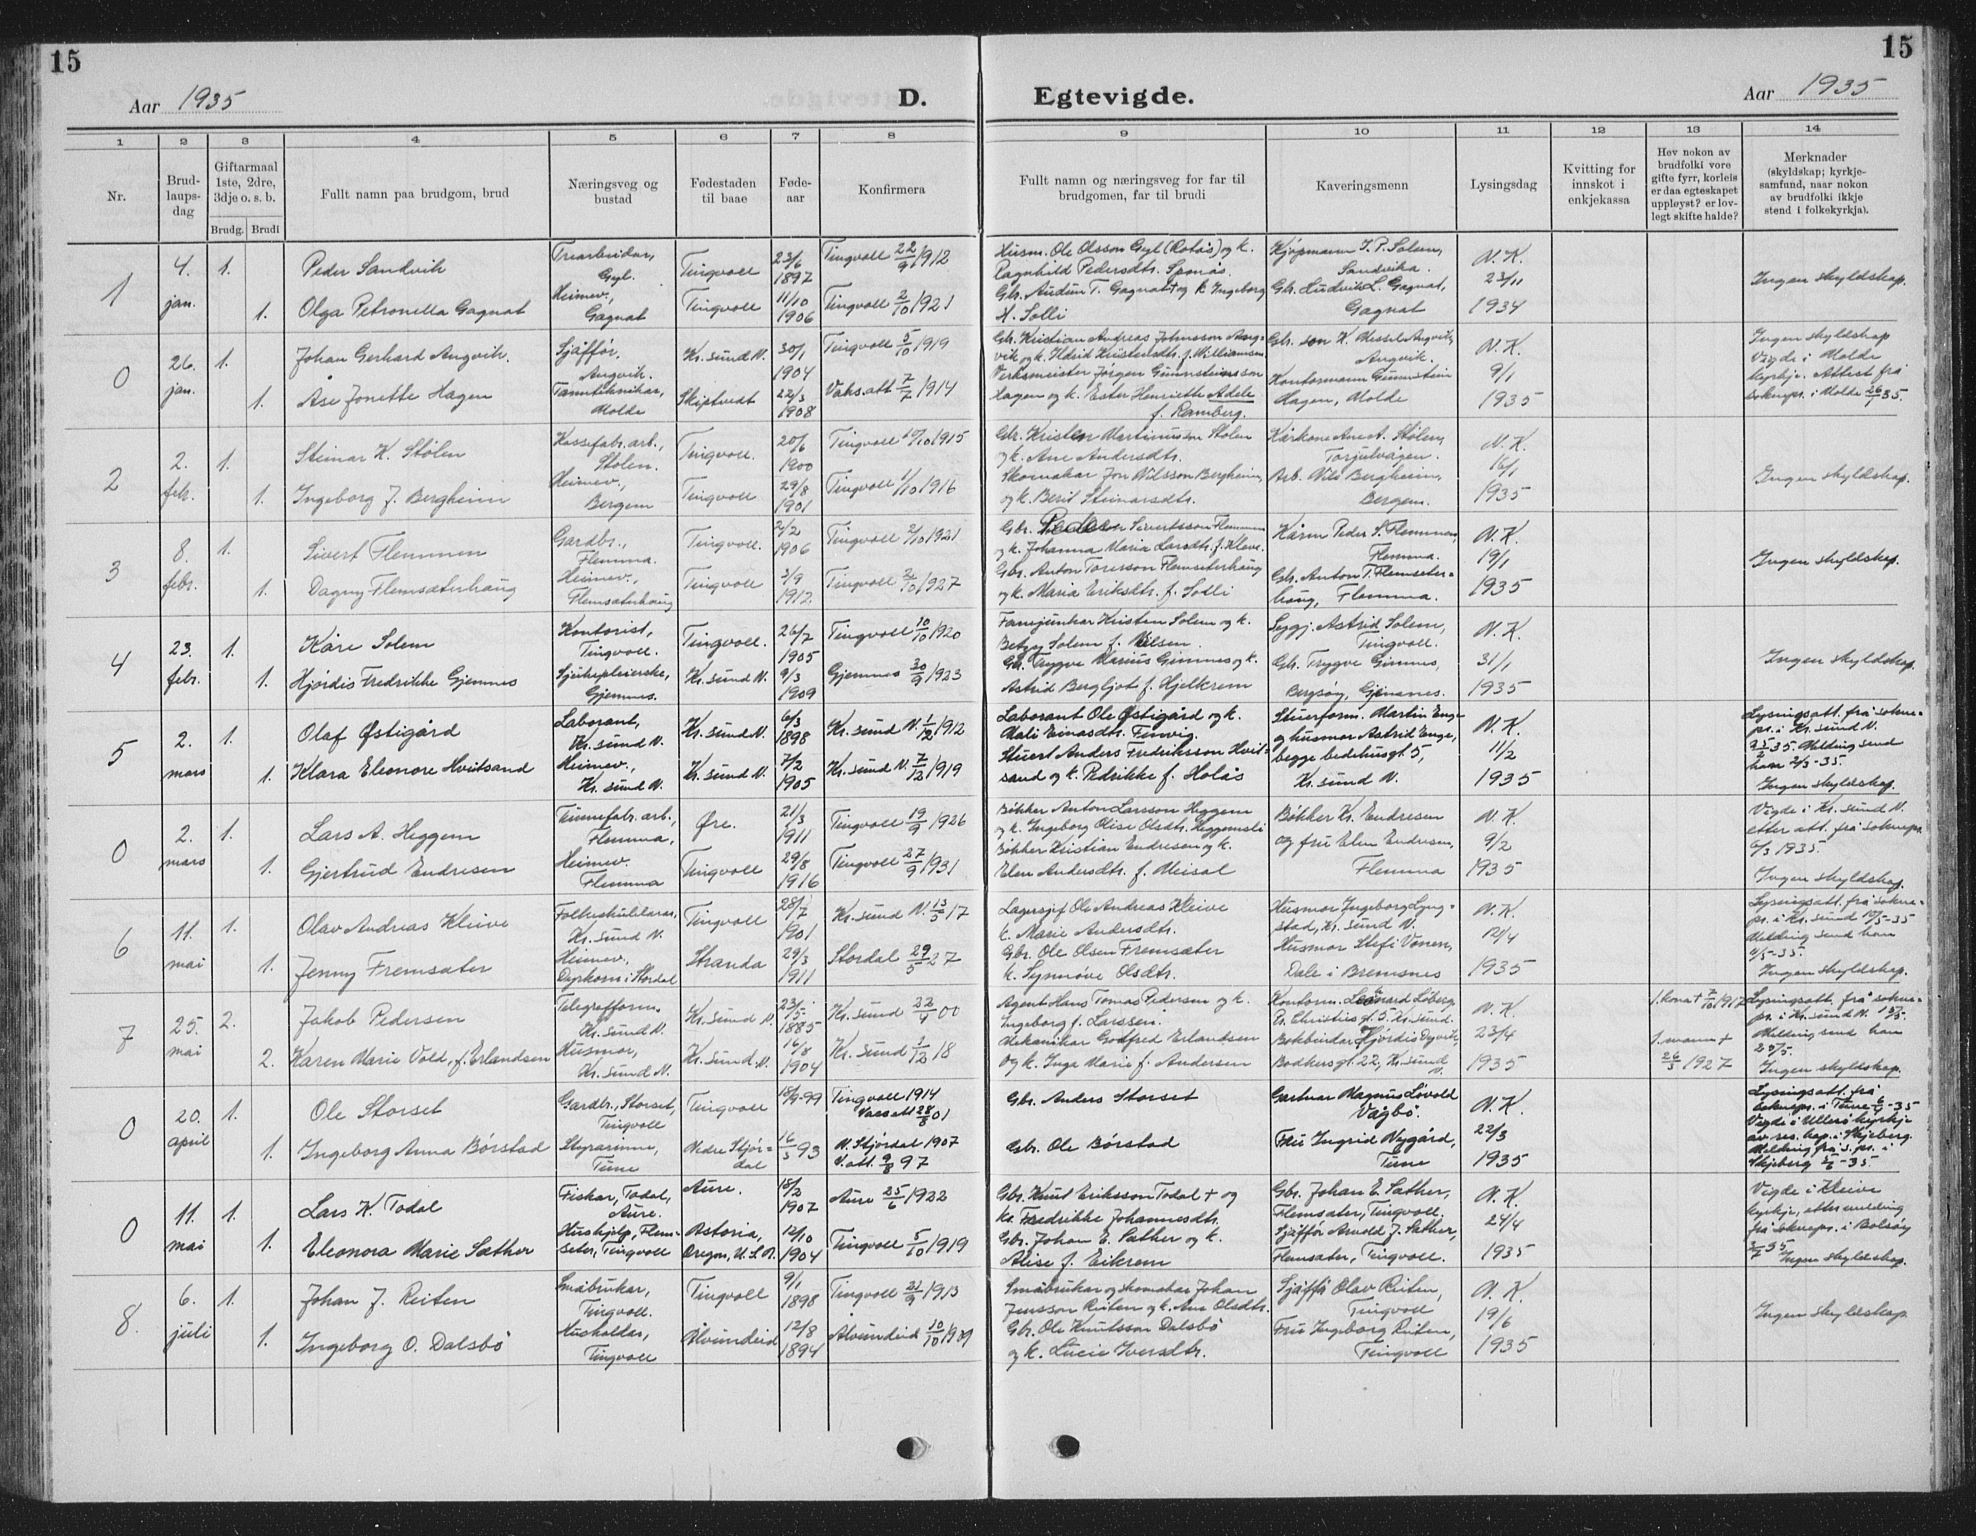 15
15
Aar 1935
D.
Egtevigde.
Aar 1935
1 2 3 4 5 6 7 8 9 10 11 12 13 14
Nr.
Brud-
laups-
dag
Giftarmaal
1ste, 2dre,
3dje o. s. b.
Brudg. Brudi
Fullt namn paa brudgom, brud
Næringsveg og
bustad
Fødestaden
til baae
Føde-
aar
Konfirmera
Fullt namn og næringsveg for far til
brudgomen, far til brudi
Kaveringsmenn
Lysingsdag
Kvitting for
innskot i
enkjekassa
Hev nokon av
brudfolki vore
gifte fyrr, korleis
er daa egteskapet
uppløyst? er lov-
legt skifte halde?
Merknader
(skyldskap; kyrkje-
samfund, naar nokon
av brudfolki ikkje
stend i folkekyrkja).
1 4. jan. 1. Peder Sandvik Trearbeidar, Gyl. Tingvoll 23/6 1897 Tingvoll 22/9 1912 Husm. Ole Olsson Gyl (Rotås) og k. Ragnhild Pedersdtr. Kjøpmann J. P. Solem, Sandvika. N. K. 23/11 1934 Ingen skyldskap.
1. Olga Petronella Gagnat Heimev., Gagnat Tingvoll 11/10 1906 Tingvoll 2/10 1921 Gbr. Audun T. Gagnat og k. Ingeborg H. Solli Gbr. Ludvik L. Gagnat, Gagnat
0 26. jan. 1. Johan Gerhard Angvik. Sjåffør, Angvik. Kr.sund N. 30/1 1904 Tingvoll 5/10 1919 Gbr. Kristian Andreas Johnsson Angvik og k. Ildrid Kristensdtr. f. Williamsen Angvik. N. K. 9/1 1935 Ingen skyldskap Vigde i Molde kyrkje. Attest frå sokneps. i Molde 26/1 35.
1. Åse Jonette Hagen Tannteknikar, Molde Skiptvedt 22/3 1908 Vaks.att. 7/7 1914 Verksmeister Jørgen Gunnsteinsson Hagen og k. Ester Henriette Adele f. Ramberg. Kontormann Gunnstein Hagen, Molde
2 2. febr. 1. Steinar K. Stølen Kassefabr. arb., Stølen. Tingvoll. 20/6 1900 Tingvoll 10/10 1915 Gbr. Kristen Martinussen Stølen og k. Ane Andersdtr. Torjulvågen. N. K. 16/1 1935 Ingen skyldskap.
1. Ingeborg J. Bergheim Heimev., Bergem Tingvoll 29/8 1901 Tingvoll 1/10 1916 Skomakar Jon Nilsson Bergheim, og k. Berit Steinarsdtr. Arb. Nils Bergheim, Bergem.
3 8. febr. 1. Sivert Flemmen Gardbr., Flemma. Tingvoll. 2/2 1906 Tingvoll 2/10 1921 Gbr. Peder Sivertsson Flemmen og k. Johanna Maria Larsdtr. f. Kleve. Kårm. Peder S. Flemmen, Flemma. N. K. 19/1 1935 Ingen skyldskap.
1. Dagny Flemsæterhaug Heimev., Flemsæterhaug Tingvoll 3/9 1912 Tingvoll 2/10 1927 Gbr. Anton Toresson Flemseterhaug og k. Maria Eriksdtr. f. Solli Gbr. Anton T. Flemseterhaug, Flemma.
4 23. febr. 1. Kåre Solem Kontorist, Tingvoll. Tingvoll. 26/7 1905 Tingvoll 10/10 1920 Fanejunkar Kristen Solem og k. Betzy Solem f. Nilsen. Astrid Solem, Tingvoll. N. K. 31/1 1935 Ingen skyldskap
1. Hjørdis Fredrikke Gjemnes Sjukepleierske, Gjemnes. Kr.sund N. 9/3 1909 Gjemnes 30/9 1923 Gbr. Tryggve Marius Gimnes og k. Astrid Bergljot f. Hjelkrem Gbr. Tryggve Gimnes, Bergsøy, Gjemnes.
5 2. mars 1. Olaf Østigård Laborant, Kr.sund N. Kr.sund N. 6/3 1898 Kr.sund N. 1/12 1912 Laborant Ole Østigård og k. Mali Einasdtr. Stuerform. Martin Enge og husmor Astrid Enge, begge bedehusgt. 5, Kr.sund N. N. K. 11/2 1935 Lysingsatt. frå sokneps. i Kr.sund N. 35. Melding send han 2/3-35. Ingen skyldskap.
1. Klara Eleonore Hvitsand Heimev., Kr.sund N. Kr.sund N. 7/2 1905 Kr.sund N. 7/12 1919 Stuert Anders Fredriksson Hvitsand og k. Pedrikke f. Holås
0 2. mars 1. Lars A. Heggem Tunnefabr. arb., Flemma, Øre. 21/3 1911 Tingvoll 19/9 1926 Bøkker Anton Larsson Heggem og k. Ingeborg Olise Olsdtr. Heggemsli Bøkker Kr. Endresen og fru Elen Endresen, Flemma N. K. 9/2 1935 Vigde i Kr.sund N. etter att. frå sokneps. 6/3 1935. Ingen skyldskap.
1. Gjertrud Endresen Heimev. Flemma Tingvoll 29/8 1916 Tingvoll 27/9 1931 Bøkker Kristian Endresen og k. Elen Andersdtr. f. Meisal
6 11. mai 1. Olav Andreas Kleive Folkeskullærar, Kr.sund N. Tingvoll 28/7 1901 Kr.sund N. 13/5 17 Lagersjef Ole Andreas Kleive k. Marie Andersdtr. Husmor Ingeborg Lyngstad, Kr.sund N. N. K. 12/4 1935 Lysingsatt. frå sokneps. i Kr.sund 10/5-35 Melding send han Ingen skyldskap.
1. Jenny Fremsæter Heimev., Dyrkorn i Stordal Stranda 29/3 1911 Stordal 29/5 27 Gbr. Ole Olsen Fremsæter k. Synnøve Olsdtr. Husmor Stefi Vonen, Dale i Bremsnes
7 25. mai 2. Jakob Pedersen Telegrafform. Kr.sund N. Kr.sund N. 23/5 1885 Kr.sund 22/4 00 Agent Hans Tomas Pedersen og k. Ingeborg f. Larssen. Kontorm. Leonard Løberg, P. Christiesgt. 5. Kr.sund. N. K. 23/4 1935 1. kona † 7/10 1917 Lysingsatt. frå sokneps. i Kr.sund N. Melding send han 28/5. Ingen skyldskap.
2. Karen Marie Vold, f. Erlandsen Husmor, Kr.sund N. Kr.sund N. 16/8 1904 Kr.sund 1/12 18 Mekanikar Godfred Erlandsen og k. Inga Marie f. Andersen Bokbindar Hjørdis Bødkersgt. 22, Kr.sund N. 1. mann † 26/3 1927
0 20. april 1. Ole Storset Gardbr., Storset, Tingvoll Tingvoll 18/9-99 Tingvoll 1914 Vaks att 28/8 01 Gbr. Anders Storset Gartnar Magnus Løvold Vågbø. N. K. 22/3 1935 Lysingsatt. frå sokneps. i Tune 6/4-35 Vigde i Ullerø kyrkje av res. kap. i Skjeberg. Melding frå s.ps. i Skjeberg
1. Ingeborg Anna Børstad Styrarinne, Tune Nedre Stjørdal 16/3 93 N. Stjørdal 1907 V. att. 9/8 97 Gbr. Ole Børstad Fru Ingrid Nygård, Tune
0 11. mai 1. Lars K. Todal Fiskar, Todal, Aure. Aure. 18/2 1907 Aure 25/6 1922 Gbr. Knut Eriksson Todal † og k. Fredrikke Johannesdtr. Gbr. Johan E. Sæther, Flemsæter, Tingvoll. N. K. 24/4 1935 Vigde i Kleive kyrkje, etter melding frå sokneps. i Bolsøy Ingen skyldskap.
1. Eleonora Marie Sæther Hushjelp, Flemseter, Tingvoll Astoria, Oregon, U.S.A. 12/10 1904 Tingvoll 5/10 1919 Gbr. Johan E. Sæther og k. Alise f. Eikrem Sjåffør Arnold J. Sæther, Flemsæter, Tingvoll.
8. 6. juli 1. Johan J. Reiten Småbrukar, Tingvoll. Tingvoll 9/1 1898 Tingvoll 21/9 1913 Småbrukar og skomakar Johan Jensson Reiten og k. Ane Olsdtr. Sjåffør Olav Reiten, Tingvoll N. K. 19/6 1935 Ingen skyldskap
1. Ingeborg O. Dalsbø Husholder, Tingvoll Ålvundeid 12/8 1894 Ålvundeid 10/10 1909 Gbr. Ole Knutsson Dalsbø og k. Lucie Iversdtr. Fru Ingeborg Reiten, Tingvoll